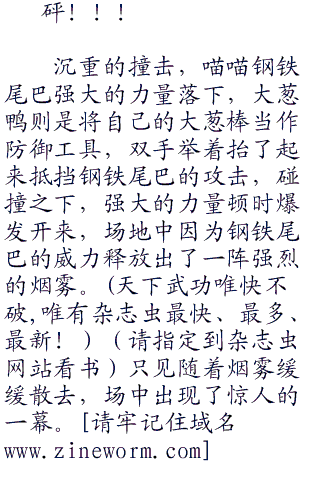 砰！！！
沉重的撞击，喵喵钢铁
尾巴强大的力量落下，大葱
鸭则是将自己的大葱棒当作
防御工具，双手举着抬了起
来抵挡钢铁尾巴的攻击，碰
撞之下，强大的力量顿时爆
发开来，场地中因为钢铁尾
巴的威力释放出了一阵强烈
的烟雾。(天下武功唯快不
破,唯有杂志虫最快、最多、
最新！)（请指定到杂志虫
网站看书）只见随着烟雾缓
缓散去，场中出现了惊人的
一幕。[请牢记住域名
www.zineworm.com]